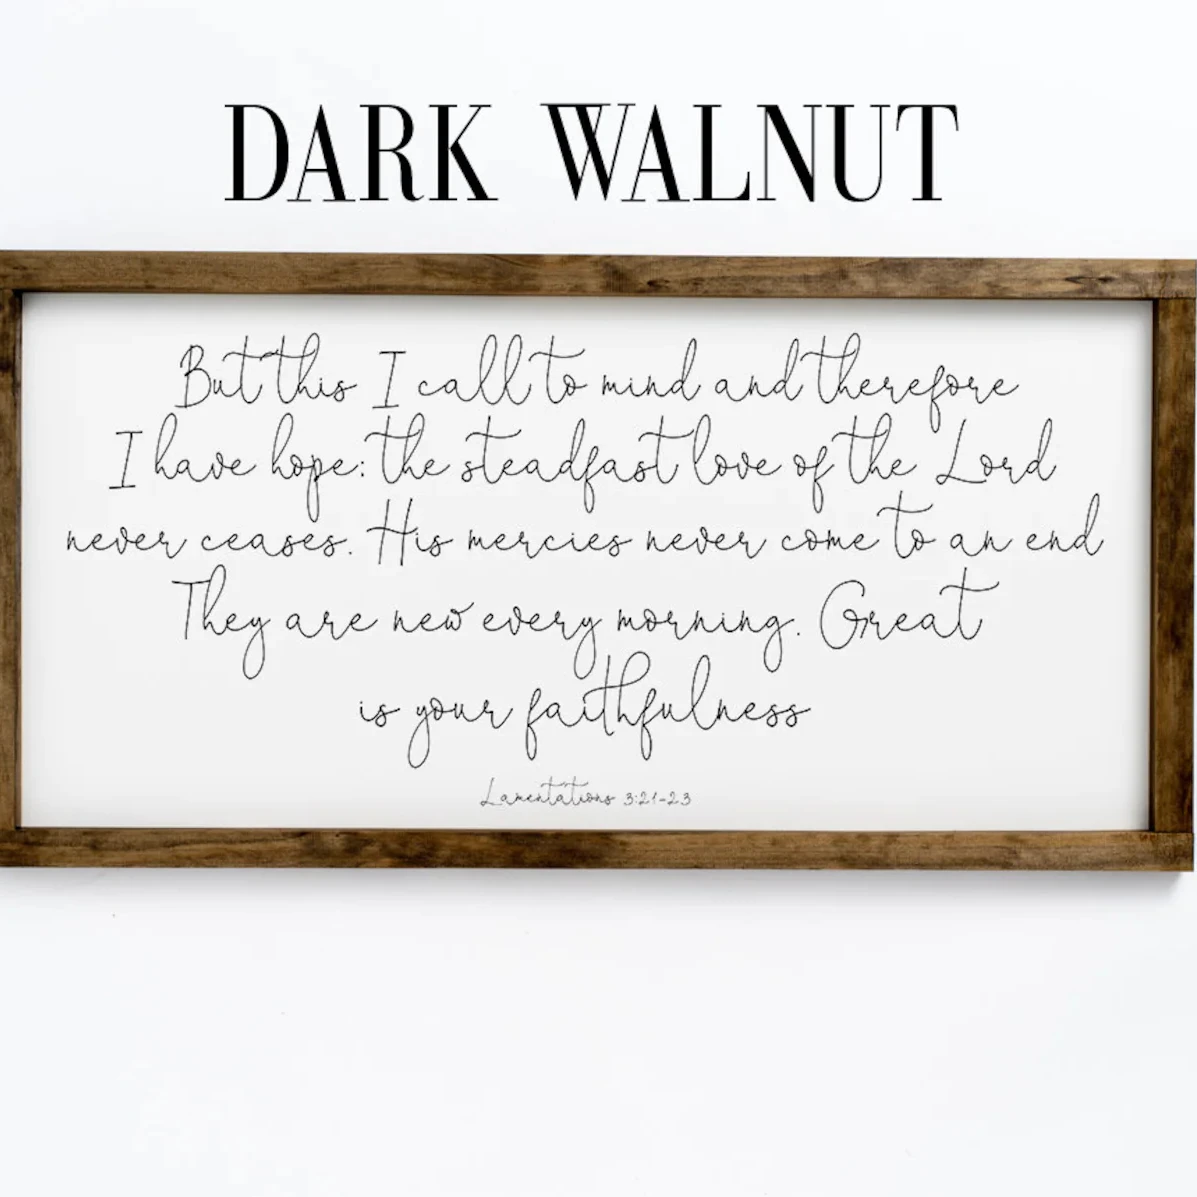 DARK WALNUT
But this I call to mind and therefore
I have hope: the steadfast love of the Lord
never ceases. His mercies never come to an end
They are new every morning. Great
is your faithfulness
Lamentations 3:21-23